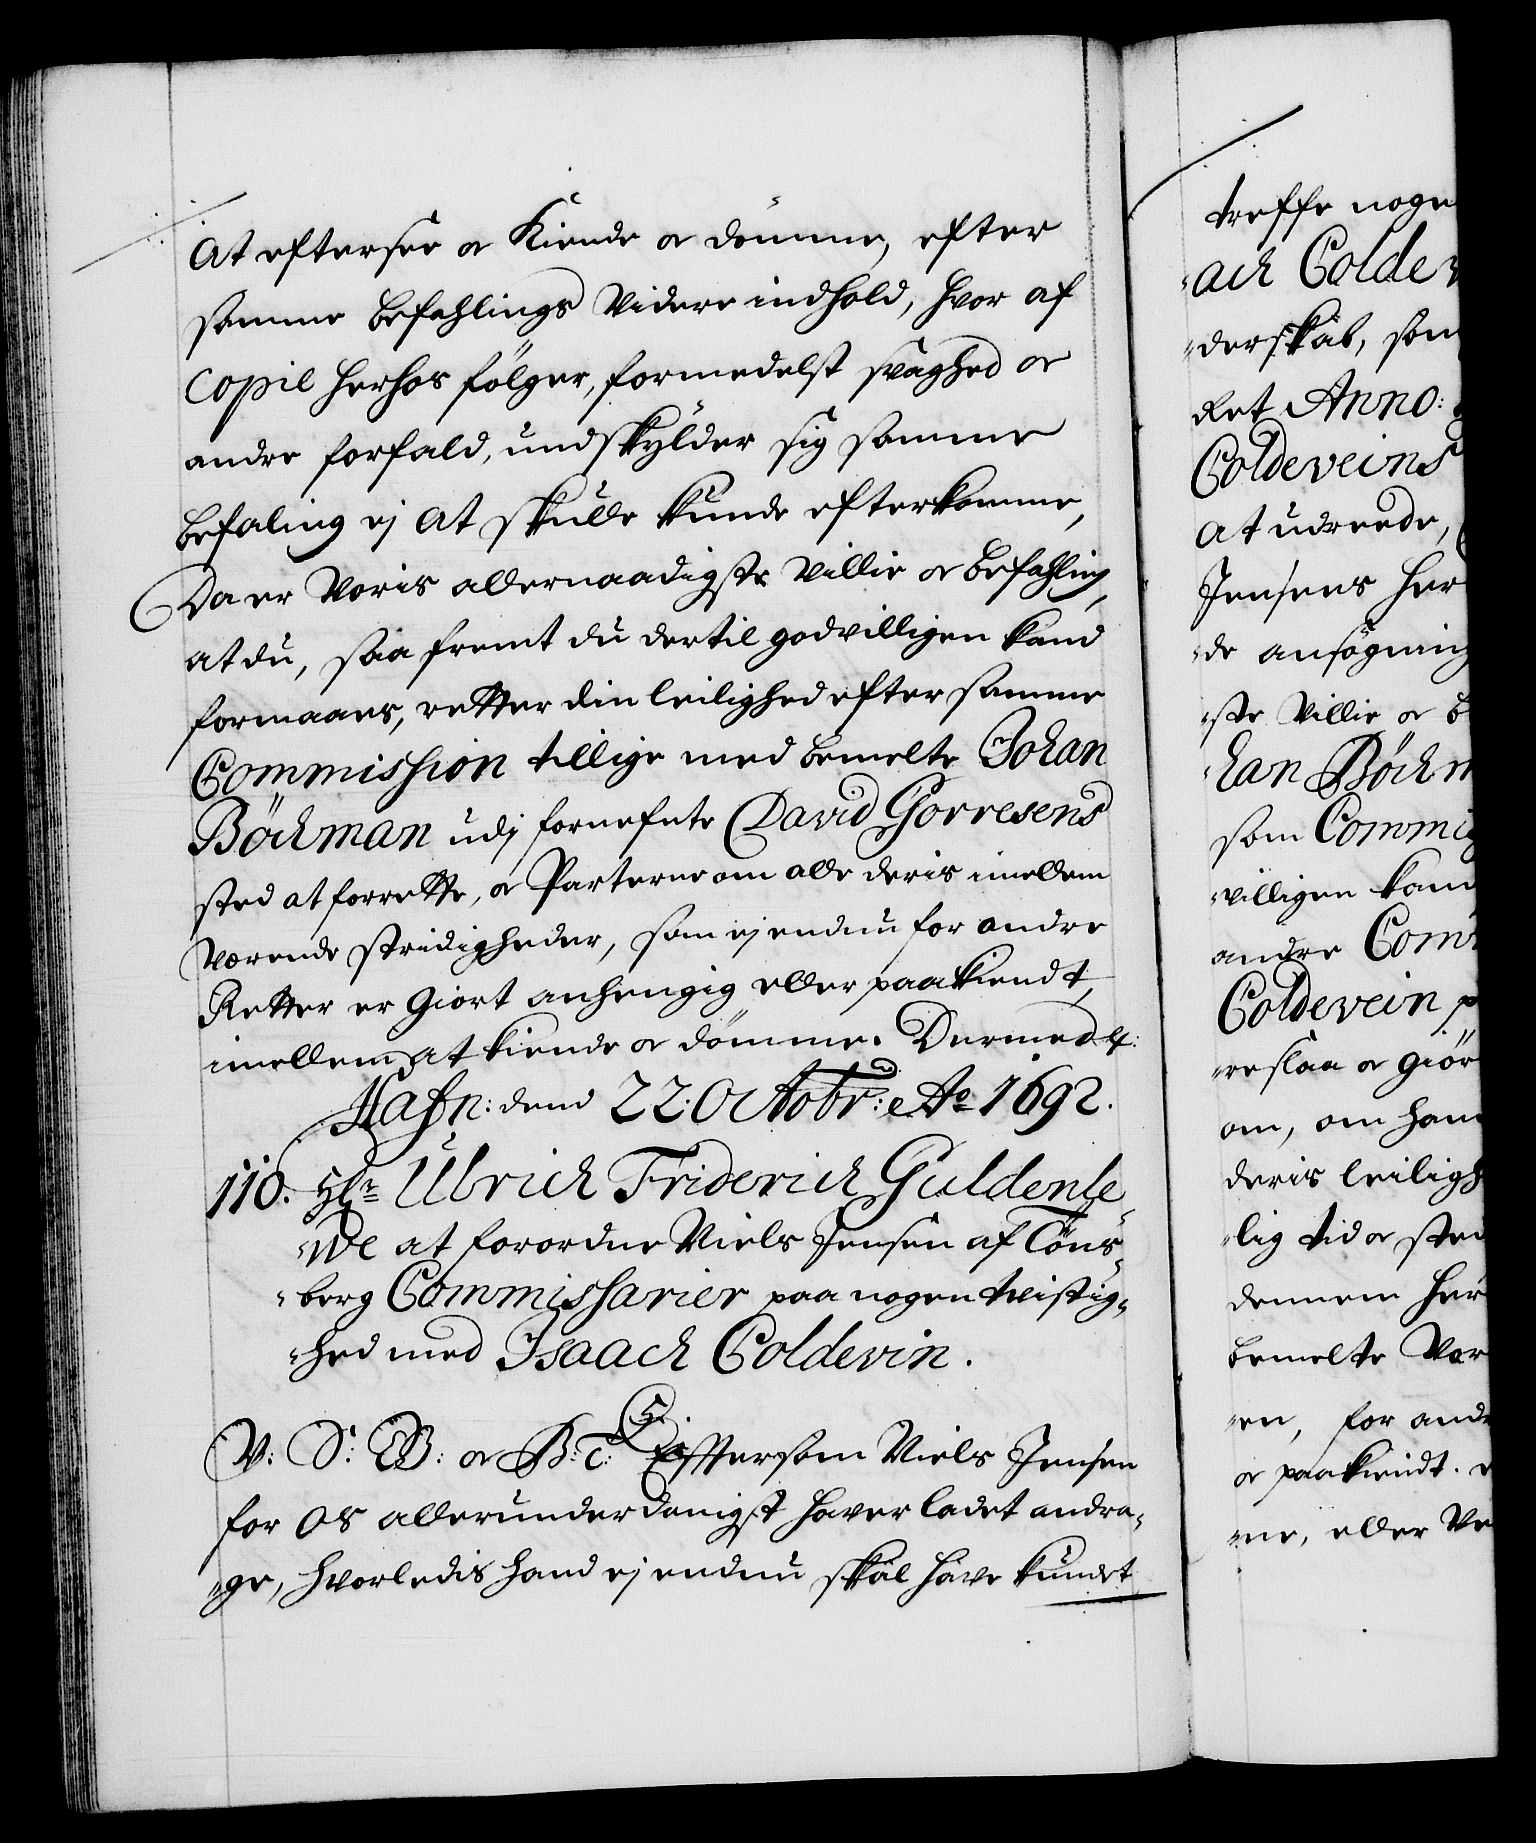 At eftersee oc Kiende oc dömme, efter
samme befahlings Videre indhold, hvor af
Copie herhos fölger, formedelst svaghed oc
andre forfald, undskylder sig samme
befaling ej at skulle kunde efterkomme,
Da er Voris allernaadigste Villie oc befahling,
at du, saa fremt du dertil godvilligen kand
formaaes, retter din leilighed efter samme
Commission tillige med bemelte Johan
Böckman udj fornefnte David Gorresens
sted at forrette, oc Parterne om alle deris imellem
værende stridigheder, som ej endnu for andre
Retter er Giort anhengig eller paakiendt,
imellem at kiende oc dömme. Dermed &:
Hafn: dend 22. Octobr: Ao 1692.
110. Hr Ulrich Friderich Guldenle-
-we at forordne Niels Jensen af Töns-
-berg Commissarier paa nogen tvistig-
-hed med Isaach Coldevin.
V: S: G: oc B: T: Efftersom Niels Jensen
for Os allerunderdanigst haver ladet andra-
-ge, hvorledis hand ej endnu skal have kundet
treffe noge
-ach Coldev
-derskab, som
Ret Anno:
Coldeveins
At udreede,
Jensens her
-de ansögning
-ste Villie oc b
-han Böckm
som Commis
-villigen kand
andre Com
Coldevein p
-reslaa oc giör
om, om hand
deris leiligh
-lig tid oc sted
dennem her
bemelte Vær
-en, for andr
oc paakiendt.
-ne, eller Ve